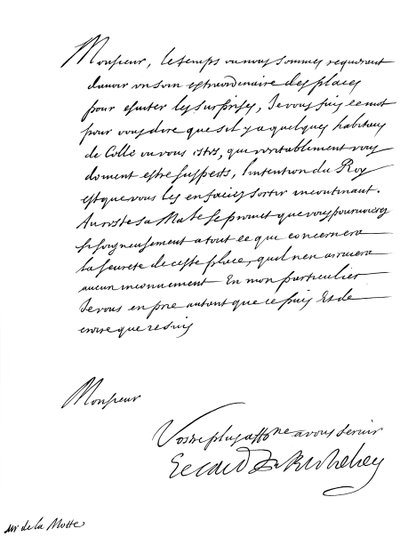 Monsieur, le temps ou nous sommes requerant
d'avoir un soin extraordinaire des places
pour esviter les surprises, Je vous fais ce mot
pour vous dire que s'il y a quelques habitans
de Celle ou vous estes, que veritablement vous
doivent estre suspects, l'intention du Roy
est que vous les en faciez sortir incontinant.
Au reste sa Mate se promet que vous pourvoirez
si soigneusement a tout ce que concernera
la seureté de ceste place, qu'il n'en arrivera
aucun inconvenient En mon particulier
Je vous en prie autant que ce puis Et de
croire que je suis
Monsieur
Vostre plus affne a vous servir
Le Card de Richelieu
de la Motte